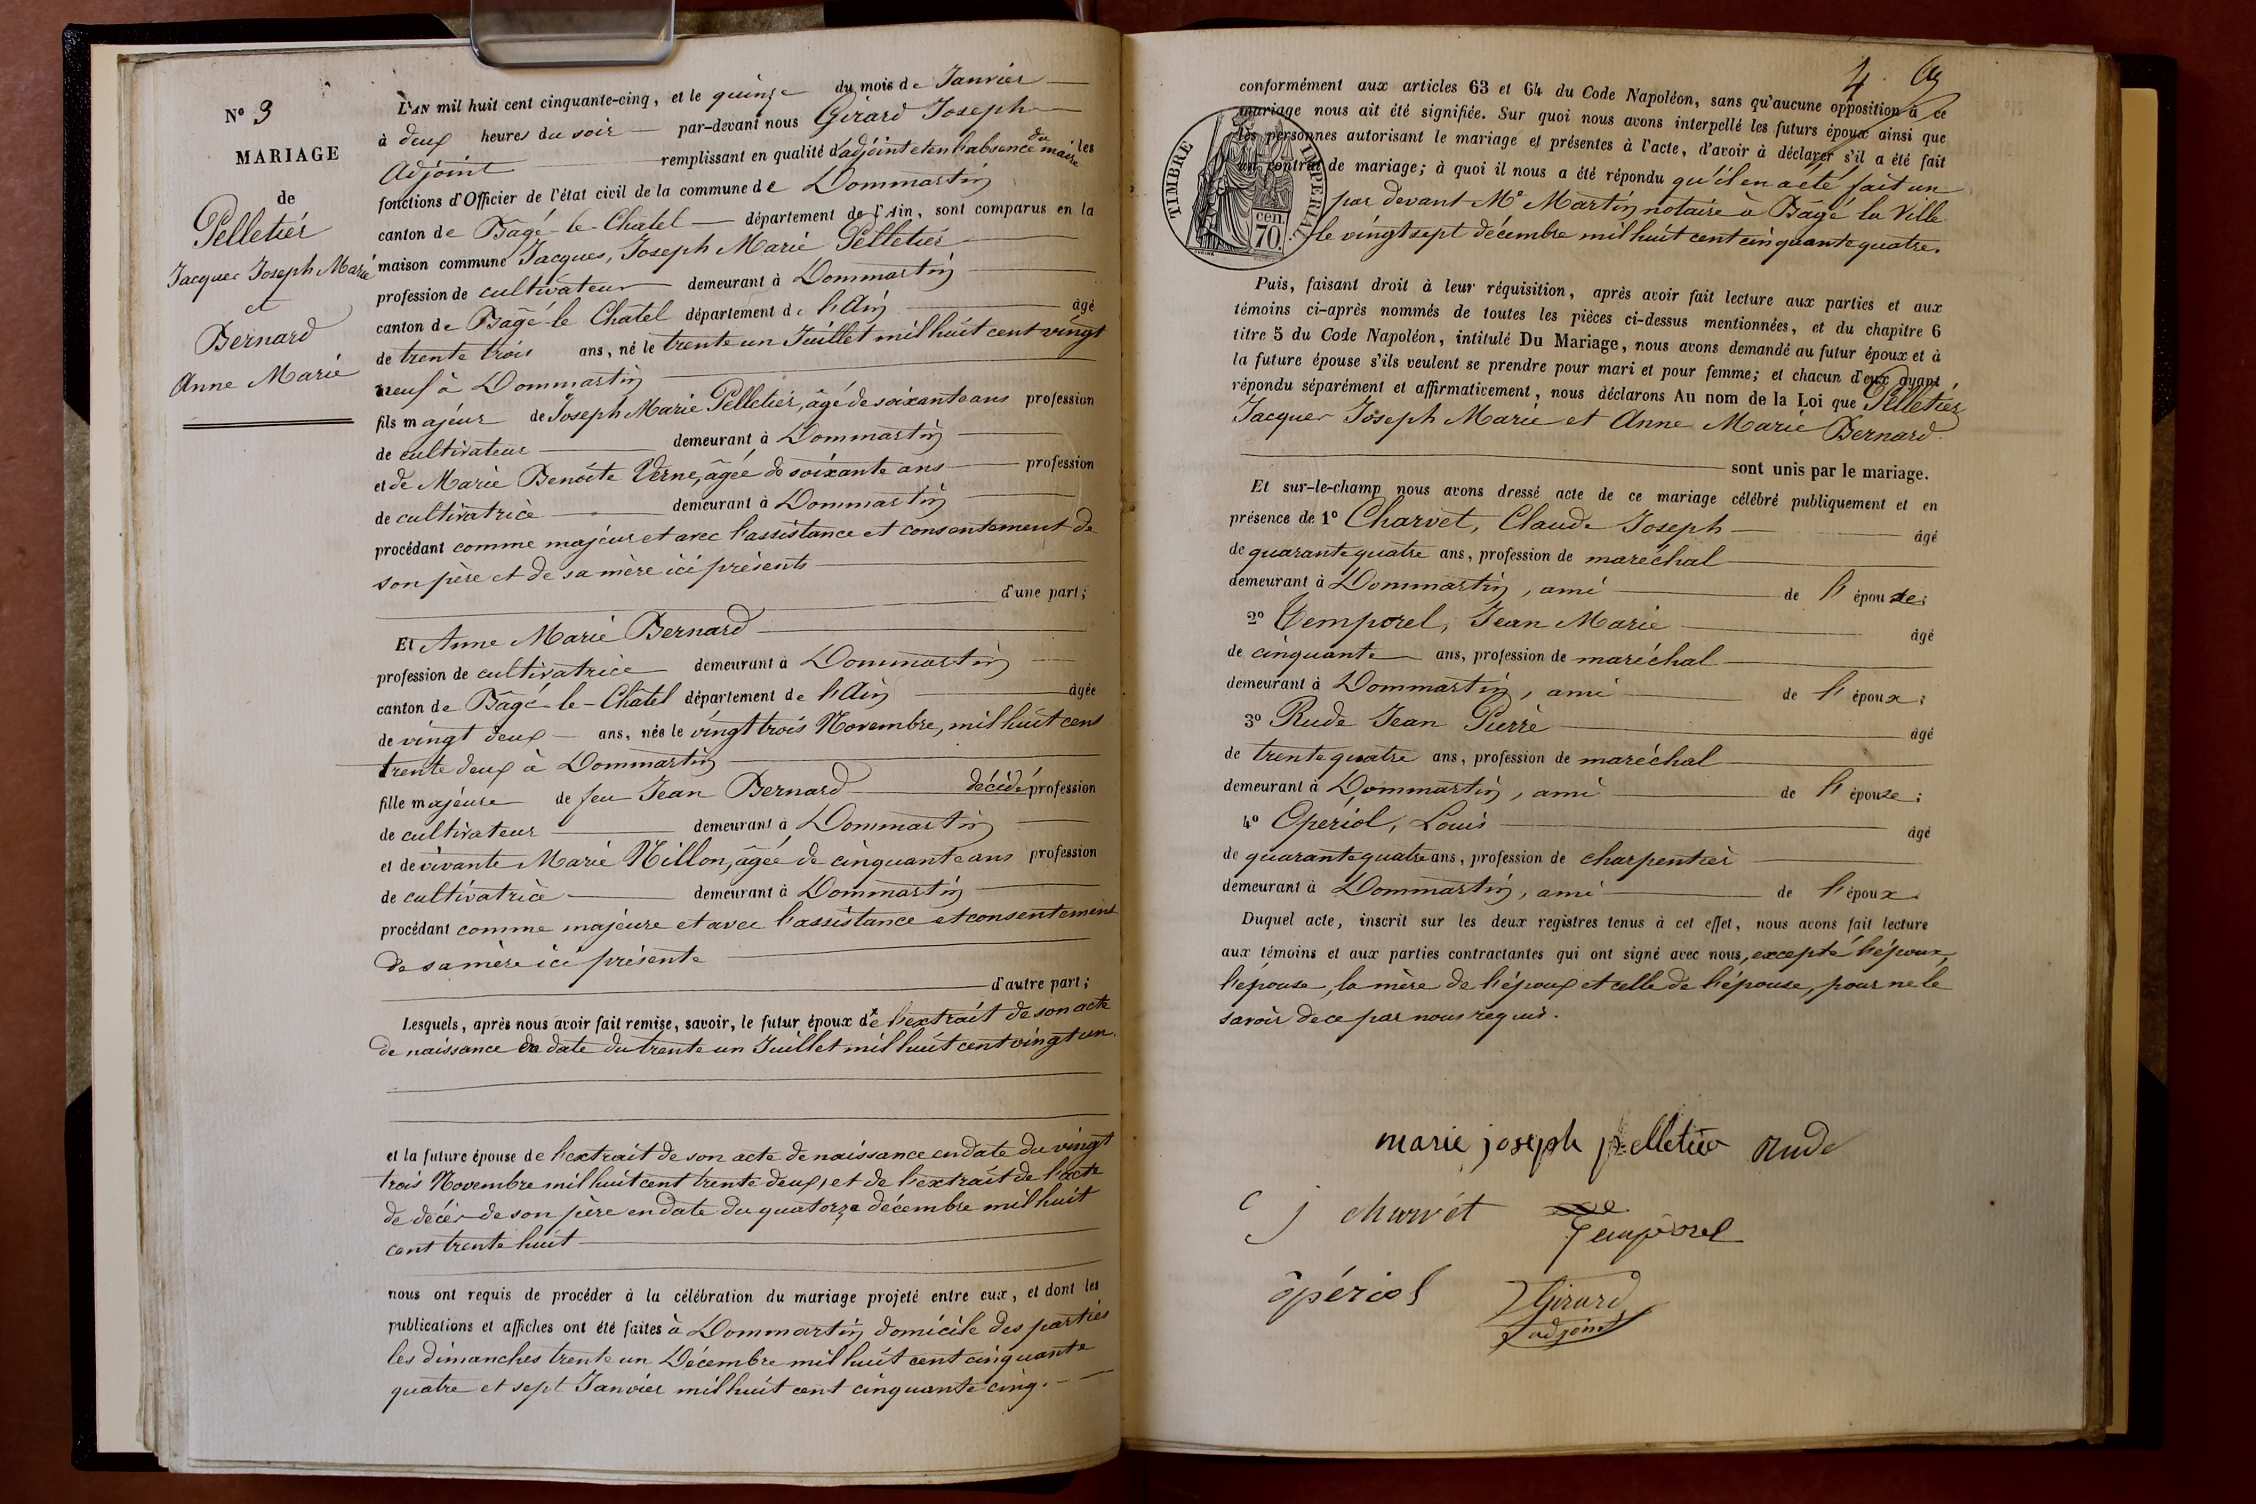 N° 3
MARIAGE
de
Pelletiér
Jacques Joseph Marie
et
Bernard
Anne Marie
L'AN mil huit cent cinquante-cinq, et le quinze du mois de Janvier
à deux heures du soir par-devant nous Girard Joseph
Adjoint remplissant en qualité d'adjoint et en l'absence du maire les
fonctions d'Officier de l'état civil de la commune de Dommartin
canton de Bâgé-le-Chatel département de l'Ain, sont comparus en la
maison commune Jacques, Joseph Marie Pelletiér
profession de cultivateur demeurant à Dommartin
canton de Bâgé-le Chatel département de l'Ain âgé
de trente trois ans, né le trente un Juillet mil huit cent vingt
neuf à Dommartin
fils majeur de Joseph Marie Pelletiér, âgé de soixante ans profession
de cultivateur demeurant à Dommartin
et de Marie Benoîte Verne, âgée de soixante ans profession
de cultivatrice demeurant à Dommartin
procédant comme majeur et avec l'assistance et consentement de
son père et de sa mère ici présents
d'une part;
Et Anne Marie Bernard
profession de cultivatrice demeurant à Dommartin
canton de Bâgé-le-Châtel département de l'Ain âgée
de vingt deux ans, née le vingt trois Novembre, mil huit cent
trente deux à Dommartin
fille majeure de feu Jean Bernard décédé profession
de cultivateur demeurant à Dommartin
et de vivante Marie Nillon, âgée de cinquante ans profession
de cultivatrice demeurant à Dommartin
procédant comme majeure et avec l'assistance et consentement
de sa mère ici présente
d'autre part;
Lesquels, après nous avoir fait remise, savoir, le futur époux de l'extrait de son acte
de naissance en date du trente un Juillet mil huit cent vingt un.
et la future épouse de l'extrait de son acte de naissance en date du vingt
trois Novembre mil huit cent trente deux, et de l'extrait de l'acte
de décès de son père en date du quatorze décembre mil huit
cent trente huit
nous ont requis de procéder à la célébration du mariage projeté entre eux, et dont les
publications et affiches ont été faites à Dommartin domicile des parties
les dimanches trente un Décembre mil huit cent cinquante
quatre et sept Janvier mil huit cent cinquante cinq.
4
conformément aux articles 63 et 64 du Code Napoléon, sans qu'aucune opposition à ce
mariage nous ait été signifiée. Sur quoi nous avons interpellé les futurs époux ainsi que
les personnes autorisant le mariage et présentes à l'acte, d'avoir à déclarer s'il a été fait
un contrat de mariage; à quoi il nous a été répondu qu'il en a été fait un
par devant Me Martin notaire à Bâgé la Ville
le vingt sept décembre mil huit cent cinquante quatre.
TIMBRE IMPERIAL
cen.
70.
Puis, faisant droit à leur réquisition, après avoir fait lecture aux parties et aux
témoins ci-après nommés de toutes les pièces ci-dessus mentionnées, et du chapitre 6
titre 5 du Code Napoléon, intitulé Du Mariage, nous avons demandé au futur époux et à
la future épouse s'ils veulent se prendre pour mari et pour femme; et chacun d'eux ayant
répondu séparément et affirmativement, nous déclarons Au nom de la Loi que Pelletiér
Jacques Joseph Marie et Anne Marie Bernard.
sont unis par le mariage.
Et sur-le-champ nous avons dressé acte de ce mariage célébré publiquement et en
présence de 1° Charvet, Claude Joseph âgé
de quarante quatre ans, profession de maréchal
demeurant à Dommartin, ami de l'épouse;
2° Temporel, Jean Marie âgé
de cinquante ans, profession de maréchal
demeurant à Dommartin, ami de l'époux;
3° Rude Jean Pierre âgé
de trente quatre ans, profession de maréchal
demeurant à Dommartin, ami de l'épouse;
4° Operiol, Louis âgé
de quarante quatre ans, profession de charpentier
demeurant à Dommartin, ami de l'époux.
Duquel acte, inscrit sur les deux registres tenus à cet effet, nous avons fait lecture
aux témoins et aux parties contractantes qui ont signé avec nous, excepté l'époux,
l'épouse, la mère de l'époux et celle de l'épouse, pour ne le
savoir de ce par nous requis.
marie joseph pelletier Rude
c j charvét
Temporel
opériol
Girard
adjoint